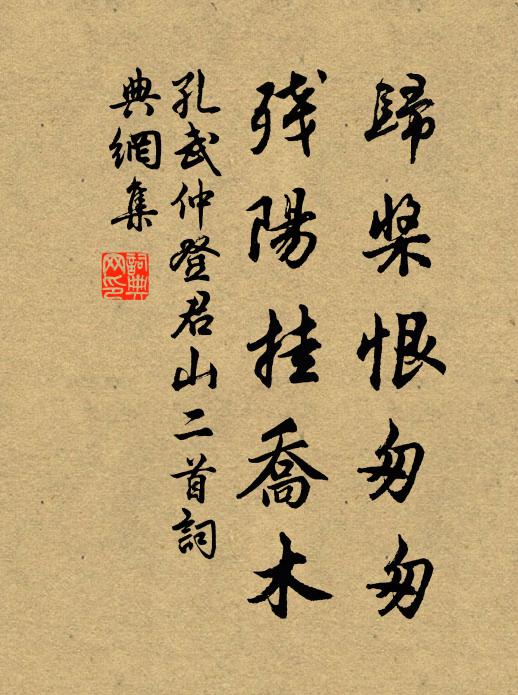 歸槳恨匆匆
殘陽挂喬木
孔武仲登君山二首詞
典網集
詞典
网印